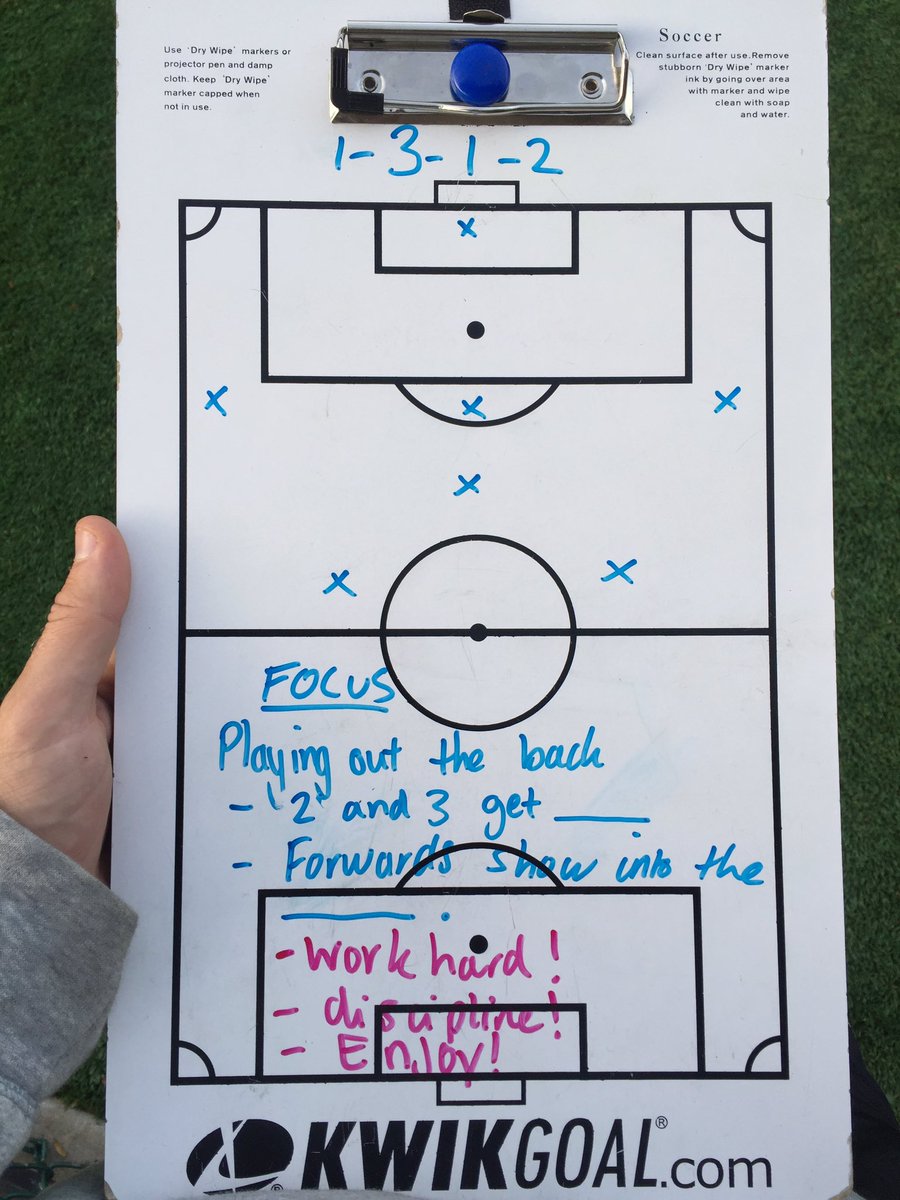 Use 'Dry Wipe' markers or
projector pen and damp
cloth. Keep 'Dry Wipe'
marker capped when
not in use.
Soccer
Clean surface after use.Remove
stubborn 'Dry Wipe' marker
ink by going over area
with marker and wipe
clean with soap
and water.
1-3-1-2
x
x x x
x
x x
FOCUS
Playing out the back
- '2' and 3 get ____.
- Forwards show into the
____.
- work hard!
- discipline!
- Enjoy!
KWIKGOAL®.com
®